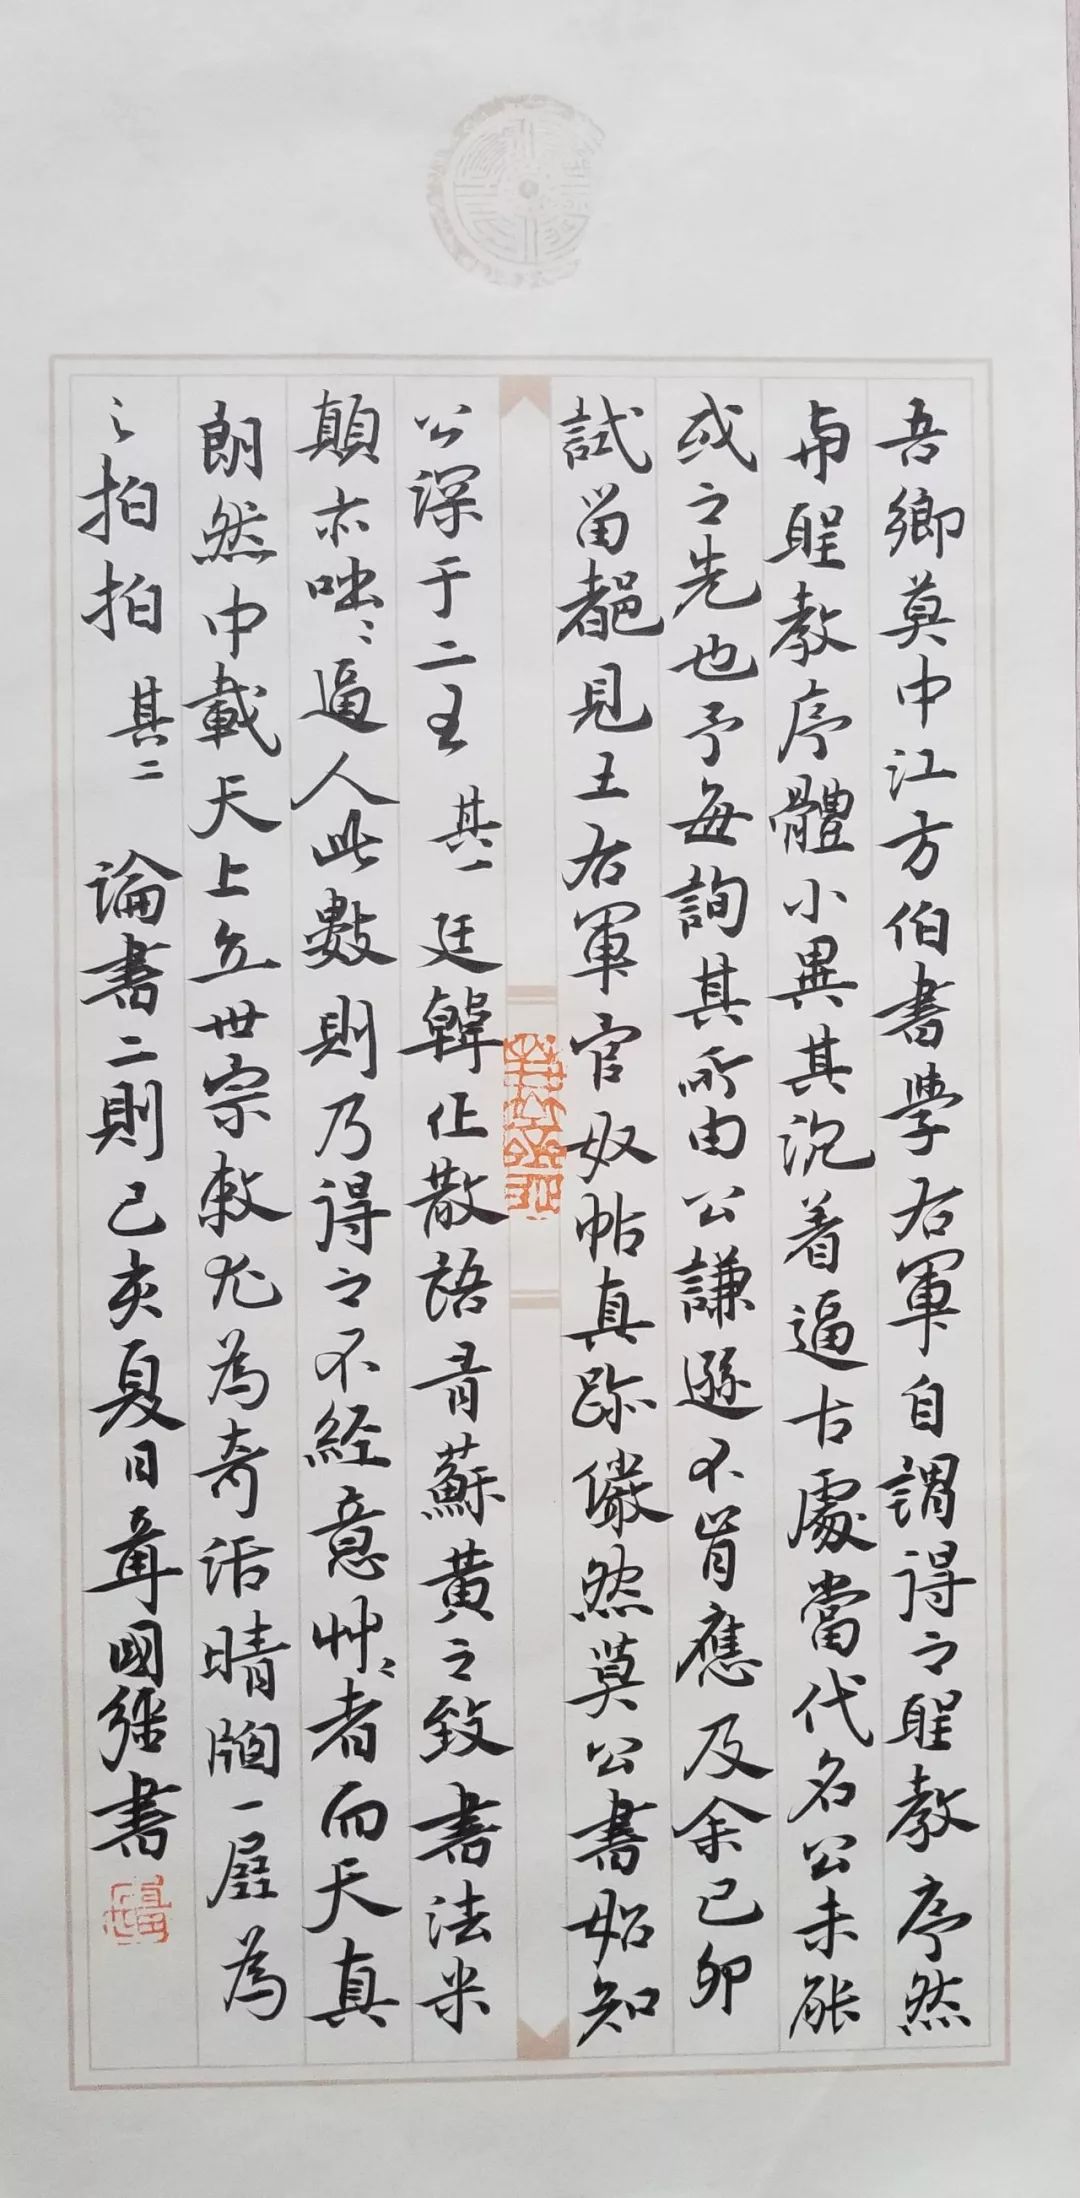 吾鄉莫中江方伯書學右軍自謂得之聖教序然
與聖教序體小異其沉着逼古處當代名公未能
或之先也予每詢其所由公謙遜不肯應及余己卯
試留都見王右軍官奴帖真跡儼然莫公書始知
公深于二王 其一 廷韓作散語有蘇黃之致書法米
顛亦咄〻逼人此數則乃得之不經意艸〻者而天真
朗然中載天上立世宗敕尤為奇活晴牕一展為
之拍拍 其二 論書二則己亥夏日 國強書